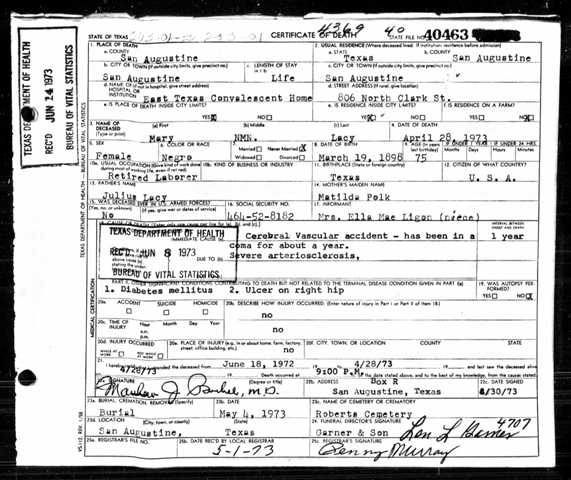 4369 40
STATE OF TEXAS CERTIFICATE OF DEATH STATE FILE NO. 40463
1. PLACE OF DEATH 2. USUAL RESIDENCE (Where deceased lived. If institution: residence before admission)
a. COUNTY San Augustine a. STATE Texas b. COUNTY San Augustine
b. CITY OR TOWN (If outside city limits, give precinct no.) c. LENGTH OF STAY c. CITY OR TOWN (If outside city limits, give precinct no.)
San Augustine Life San Augustine
d. NAME OF (If not in hospital, give street address) HOSPITAL OR INSTITUTION d. STREET ADDRESS (If rural, give location)
East Texas Convalescent Home 806 North Clark St.
e. IS PLACE OF DEATH INSIDE CITY LIMITS? e. IS RESIDENCE INSIDE CITY LIMITS? f. IS RESIDENCE ON A FARM?
YES NO YES NO YES NO
3. NAME OF DECEASED (Type or print) (a) First (b) Middle (c) Last 4. DATE OF DEATH
Mary NMN. Lacy April 28, 1973
5. SEX 6. COLOR OR RACE 7. Married Never Married 8. DATE OF BIRTH 9. AGE (In years last birthday) IF UNDER 1 YEAR IF UNDER 24 HRS.
Female Negro Widowed Divorced March 19, 1898 75 Months Days Hours Minutes
10a. USUAL OCCUPATION (Give kind of work done during most of working life, even if retired) 10b. KIND OF BUSINESS OR INDUSTRY 11. BIRTHPLACE (State or foreign country) 12. CITIZEN OF WHAT COUNTRY?
Retired Laborer Texas U.S.A.
13. FATHER'S NAME 14. MOTHER'S MAIDEN NAME
Julius Lacy Matilda Polk
15. WAS DECEASED EVER IN U.S. ARMED FORCES? 16. SOCIAL SECURITY NO. 17. INFORMANT
(Yes, no, or unknown) (If yes, give war or dates of service)
No 464-52-8182 Mrs. Ella Mae Ligon (niece)
18. CAUSE OF DEATH INTERVAL BETWEEN ONSET AND DEATH
IMMEDIATE CAUSE Cerebral Vascular accident - has been in a 1 year
coma for about a year.
DUE TO Severe arteriosclerosis,
TEXAS DEPARTMENT OF HEALTH
REC'D JUN 8 1973
BUREAU OF VITAL STATISTICS
PART II. OTHER SIGNIFICANT CONDITIONS CONTRIBUTING TO DEATH BUT NOT RELATED TO THE TERMINAL DISEASE CONDITION GIVEN IN PART I(a) 19. WAS AUTOPSY PERFORMED?
1. Diabetes mellitus 2. Ulcer on right hip YES NO
20a. ACCIDENT SUICIDE HOMICIDE 20b. DESCRIBE HOW INJURY OCCURRED. (Enter nature of injury in Part I or Part II of item 18.)
no
20c. TIME OF INJURY Hour Month Day Year
no
20d. INJURY OCCURRED 20e. PLACE OF INJURY (e.g., in or about home, farm, factory, street, office building, etc.) 20f. CITY, TOWN, OR LOCATION COUNTY STATE
WHILE AT WORK NOT WHILE AT WORK no
21. I hereby certify that I attended the deceased from June 18, 1972 to 4/28/73 and last saw the deceased alive
4/28/73 Death occurred at 9:00 P.M. on the date stated above, and to the best of my knowledge, from the causes stated.
22a. SIGNATURE (Degree or title) 22b. ADDRESS Box R 22c. DATE SIGNED
M.D. San Augustine, Texas 4/30/73
23a. BURIAL, CREMATION, REMOVAL (Specify) 23b. DATE 23c. NAME OF CEMETERY OR CREMATORY
Burial May 4, 1973 Roberts Cemetery
23d. LOCATION (City, town, or county) (State) 24. FUNERAL DIRECTOR'S SIGNATURE 4707
San Augustine, Texas Garner & Son
25a. REGISTRAR'S FILE NO. 25b. DATE REC'D BY LOCAL REGISTRAR 25c. REGISTRAR'S SIGNATURE
5-1-73 Murray
TEXAS DEPARTMENT OF HEALTH
REC'D JUN 14 1973
BUREAU OF VITAL STATISTICS
TEXAS DEPARTMENT OF HEALTH
BUREAU OF VITAL STATISTICS
MEDICAL CERTIFICATION